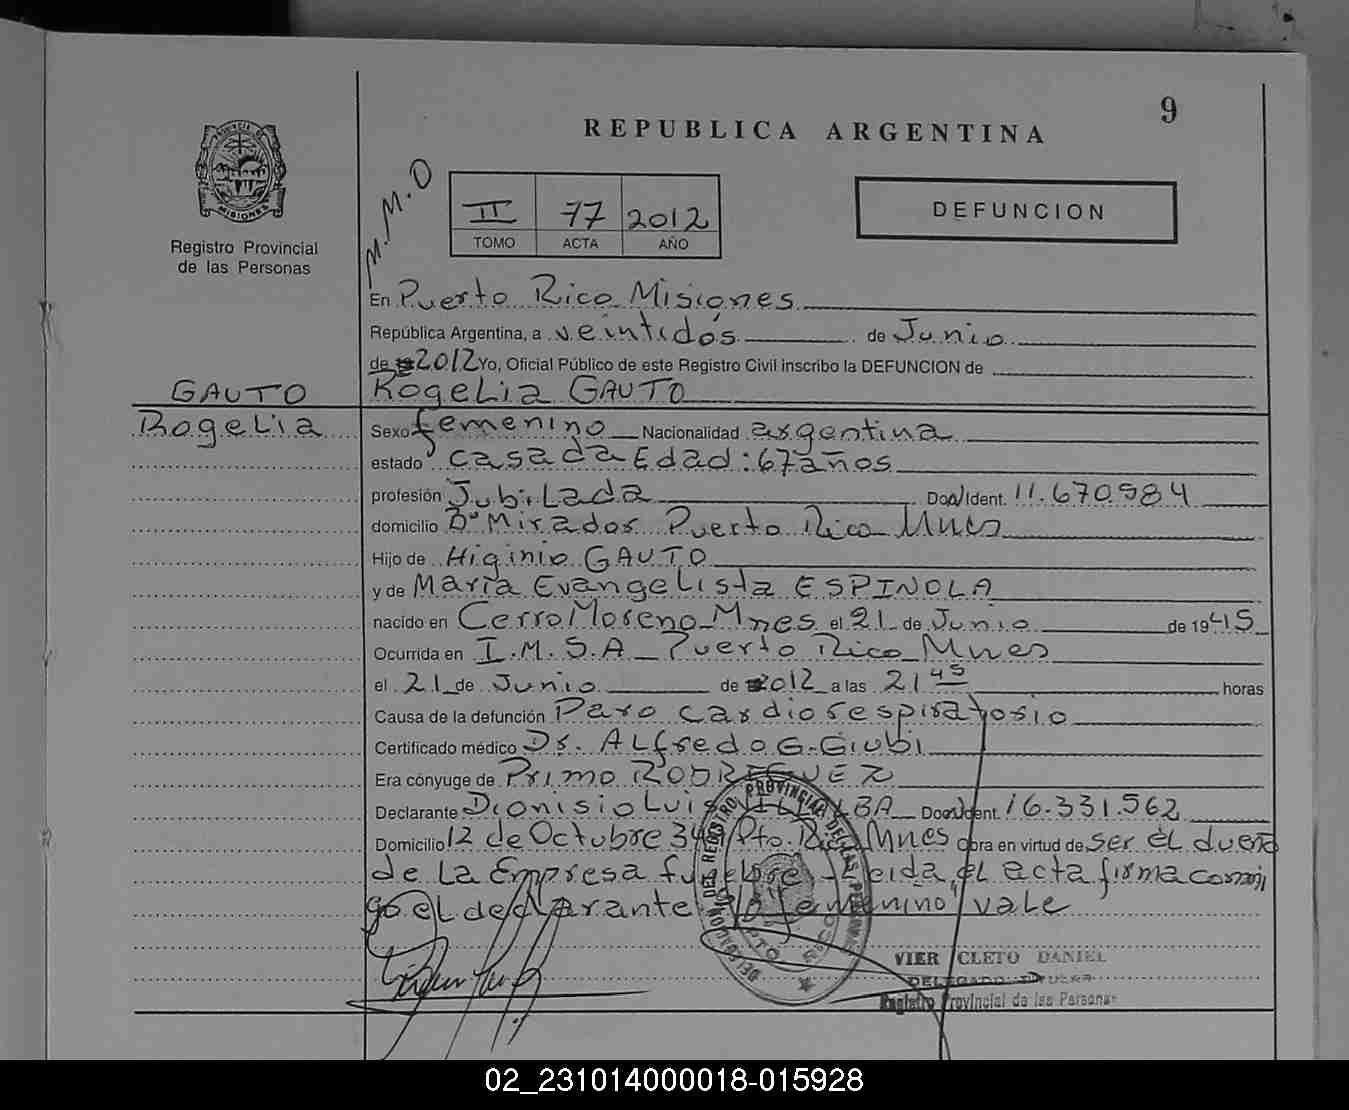 9
REPUBLICA ARGENTINA
PROVINCIA DE MISIONES
Registro Provincial
de las Personas
M.M.O
II 77 2012
TOMO ACTA AÑO
DEFUNCION
En Puerto Rico Misiones
República Argentina, a veintidós de Junio
de 2012 Yo, Oficial Público de este Registro Civil inscribo la DEFUNCION de
GAUTO Rogelia GAUTO
Rogelia Sexo femenino Nacionalidad argentina
estado casada Edad: 67 años
profesión Jubilada Doc. Ident. 11.670.984
domicilio Bº Mirador Puerto Rico Mnes
Hijo de Higinio GAUTO
y de María Evangelista ESPINOLA
nacido en Cerro Moreno Mnes el 21 de Junio de 1945
Ocurrida en I.M.S.A Puerto Rico Mnes
el 21 de Junio de 2012 a las 21 45 horas
Causa de la defunción Paro cardiorespiratorio
Certificado médico Dr. Alfredo G. Giubi
Era cónyuge de Primo RODRIGUEZ
Declarante Dionisio Luis Doc. Ident. 16.331.562
Domicilio 12 de Octubre Pto. Rico Mnes Obra en virtud de ser el dueño
de la Empresa funebre Leida el acta firma conmi
go el declarante femenino" vale
DELEGACION DEL REGISTRO PROVINCIAL DE LAS PERSONAS
VIER CLETO DANIEL
DELEGADO TITULAR
Registro Provincial de las Personas
02_231014000018-015928